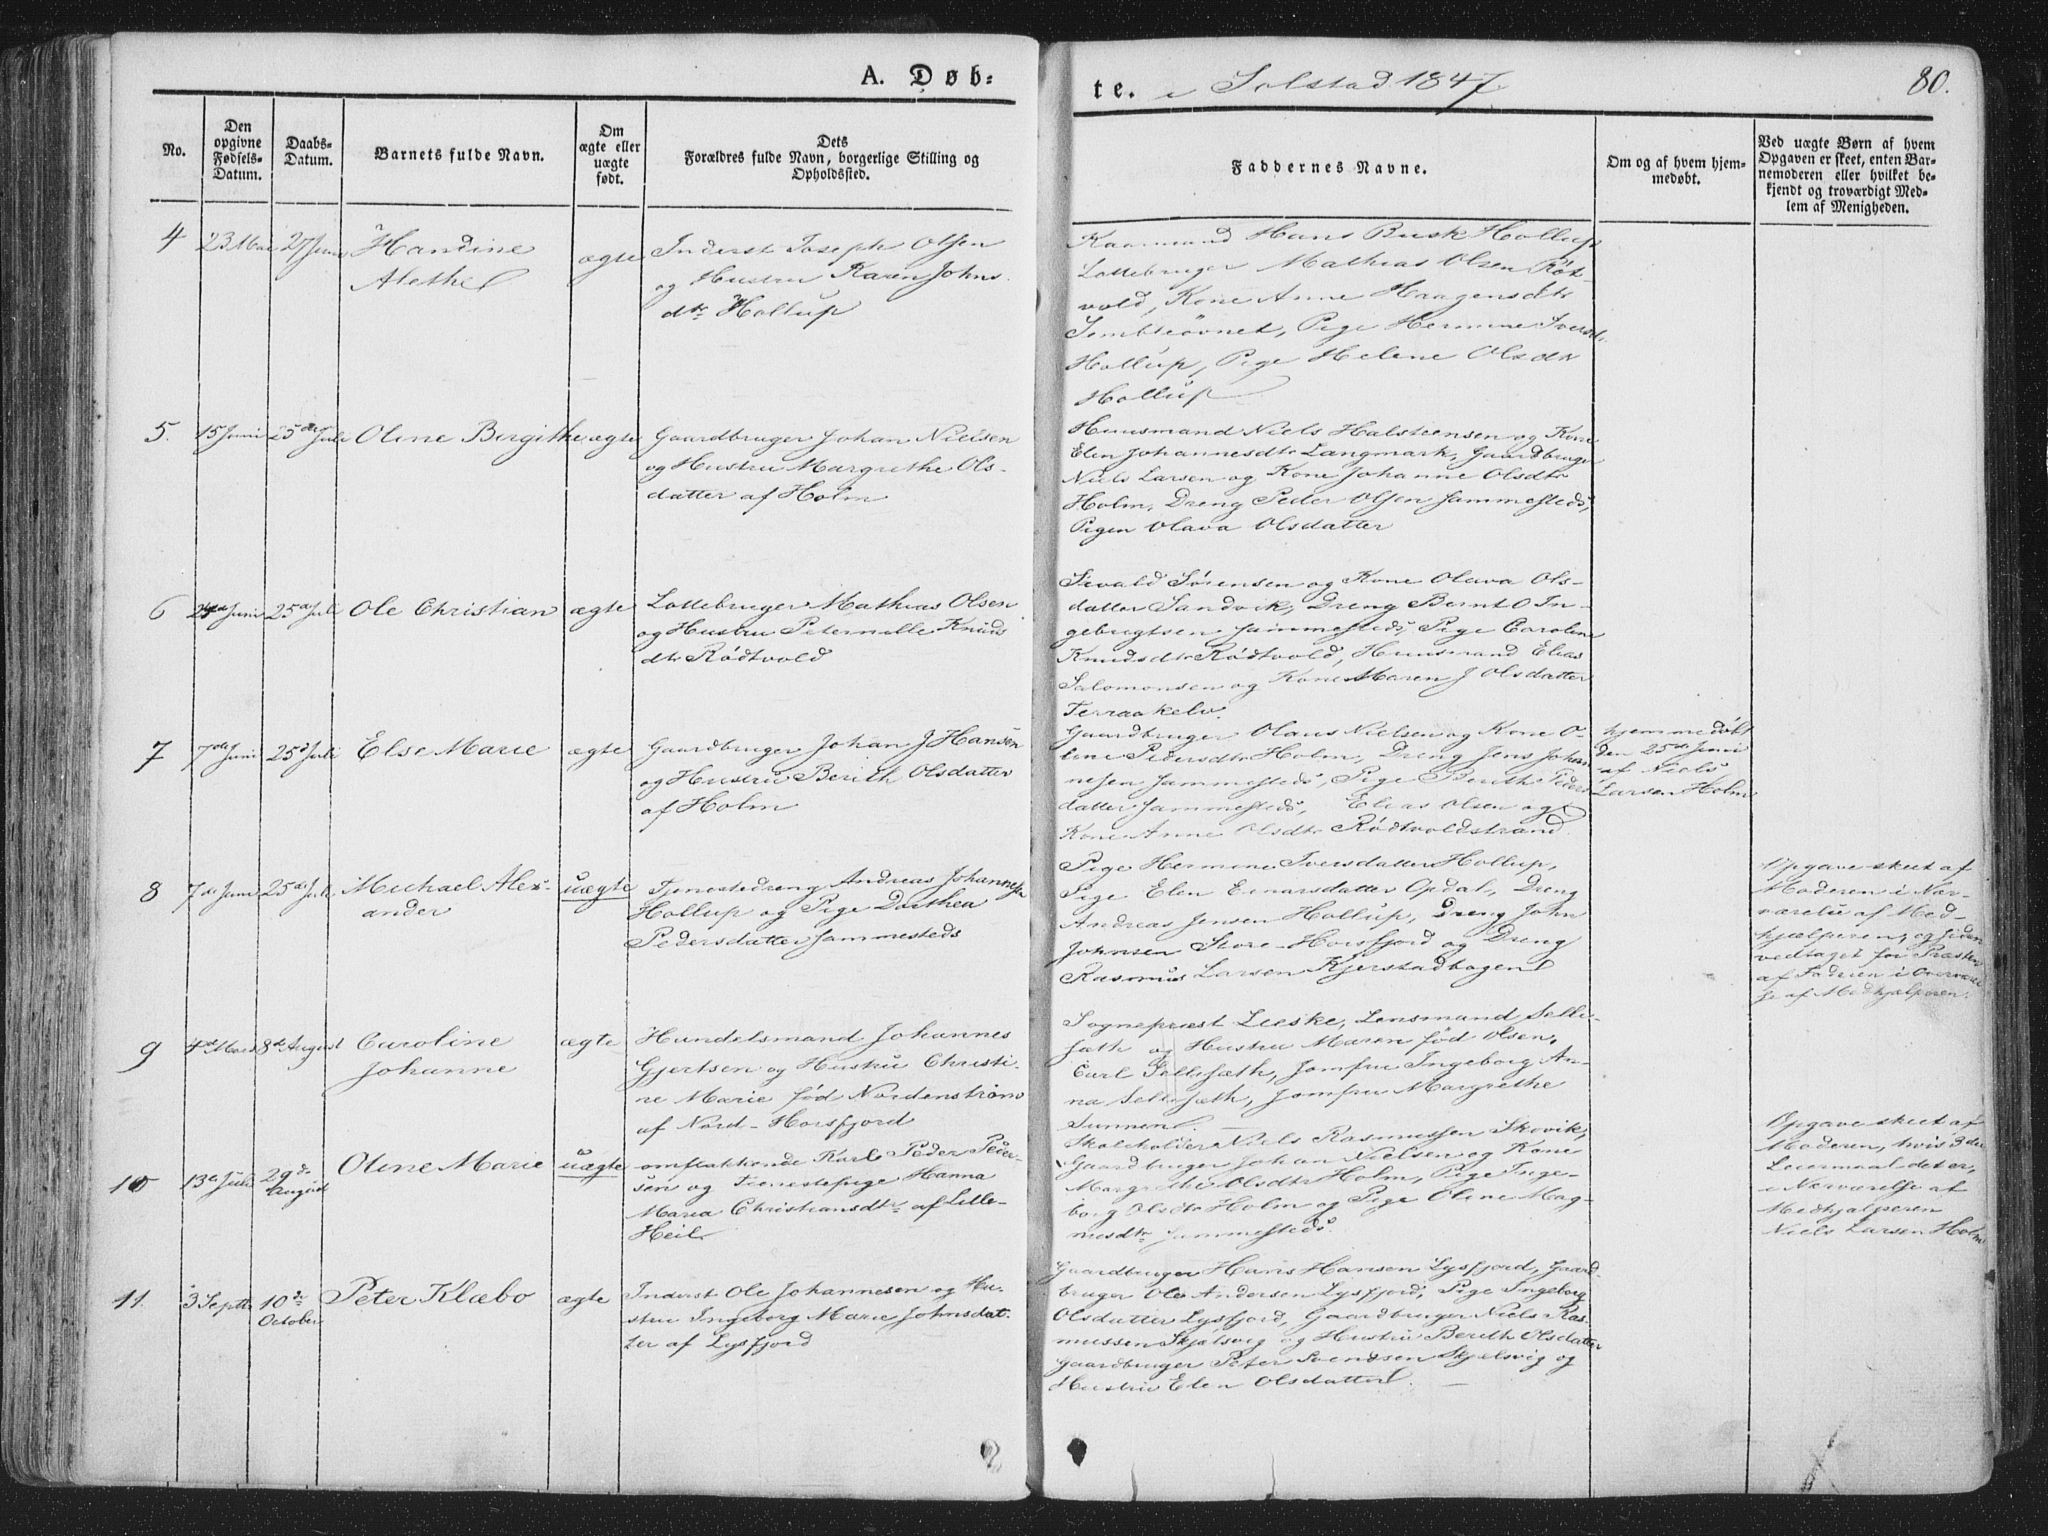 A. Døb-
te. i Solstad 1847
80.
No.
Den opgivne Fødsels-Datum.
Daabs-Datum.
Barnets fulde Navn.
Om ægte eller uægte født.
Dets Forældres fulde Navn, borgerlige Stilling og Opholdssted.
Faddernes Navne.
Om og af hvem hjemmedøbt.
Ved uægte Børn af hvem Opgaven er skeet, enten Barnemoderen eller hvilket bekjendt og troværdigt Medlem af Menigheden.
4 23 Mai 27 Juni Handine
Alethe
ægte
Inderst Joseph Olsen
og Hustru Karen Johns
dtr Hollup
Hans Busk Hollup
Lottebruger Mathias Olsen Röt
vold, Kone Anne Haagensdtr
Pige Hermine Iversdtr
Hollup, Pige Helene Olsdtr
Hollup
5. 15 Juni 25de Juli Oline Birgithe ægte
Gaardbruger Johan Nielsen
og Hustru Margrethe Ols-
datter af Holm
Huusmand Niels Halsteensen og Kone
Elen Johannesdtr Langmark, Gaardbruger
Niels Larsen og Kone Johanne Olsdtr
Holm, Dreng Peder Olsen sammesteds,
Pigen Olava Olsdatter
6 24de Juni 25de Juli Ole Christian ægte
Lottebruger Mathias Olsen
og Hustru Peternelle Knuds
dtr Rødtvold
Sivald Sørensen og Kone Olava Ols-
datter Sandvik, Dreng Bernt O In-
gebrigtsen sammesteds, Pige Caroline
Knudsdtr Rødtvold, Huusmand Elias
Salomonsen og Kone Maren J Olsdatter
Terraakelv.
7 7de Juni 25de Juli Else Marie ægte
Gaardbruger Johan J Hansen
og Hustru Berith Olsdatter
af Holm
Gaardbruger Olaus Nielsen og Kone O-
line Pedersdtr Holm, Dreng Jens Johan
nesen sammesteds, Pige Berith Peders
datter sammesteds, Elias Olsen og
Kone Anne Olsdtr Rødtvoldstrand.
hjemmedøbt
den 25de Juni
af Niels
Larsen Holm
8 7de Juni 25de Juli Michael Alex-
ander
uægte
Tjenestedreng Andreas Johannesen
Hollup og Pige Dorthea
Pedersdatter sammesteds
Pige Hermine Iversdatter Hollup,
Pige Elen Einarsdatter Opdal, Dreng
Andreas Jensen Hollup, Dreng John
Johnsen Store-Horsfjord og Dreng
Rasmus Larsen Kjerstadbogen
Opgave skeet af
Moderen i Nær-
værelse af Med-
hjælperen, og siden
vedtaget for Præsten
af Faderen i Overværel
se af Medhjælperen.
9 4de Marts 8de August Caroline
Johanne
ægte
Handelsmand Johannes
Gjertsen og Hustru Christi-
ne Marie fød Nordenstrøm
af Nord-Horsfjord
Sognepræst Leeske, Lensmand Selle-
sæth og Hustru Maren fød Olsen,
Carl Sellesæth, Jomfru Ingeborg An-
na Sellesæth, Jomfru Margrethe
10 13de Juli 29de August Oline Marie uægte
omflakkende Karl Peder Peder-
sen og Tjenestepige Hanna
Maria Christiansdtr af Lille-
Heil.
Skoleholder Niels Rasmussen Skovik,
Gaardbruger Johan Nielsen og Kone
Margrethe Olsdtr Holm, Pige Inge-
borg Olsdtr Holm og Pige Oline Mag-
nusdtr sammesteds.
Opgave skeet af
Moderen, hvis 3die
Leiermaal det er,
i Nærværelse af
Medhjælperen
Niels Larsen Holm
11. 3 Septbr 10de October Peter Klæbo ægte
Inderst Ole Johannesen og Hu-
stru Ingeborg Marie Johnsdat-
ter af Lysfjord
Gaardbruger Hans Hansen Lysfjord, Gaard-
bruger Ole Andersen Lysfjord, Pige Ingeborg
Olsdatter Lysfjord, Gaardbruger Niels Ras-
mussen Skjelsvig og Hustru Berith Olsdatter
Gaardbruger Peter Svendsen Skjelsvig og
Hustru Elen Olsdatter.